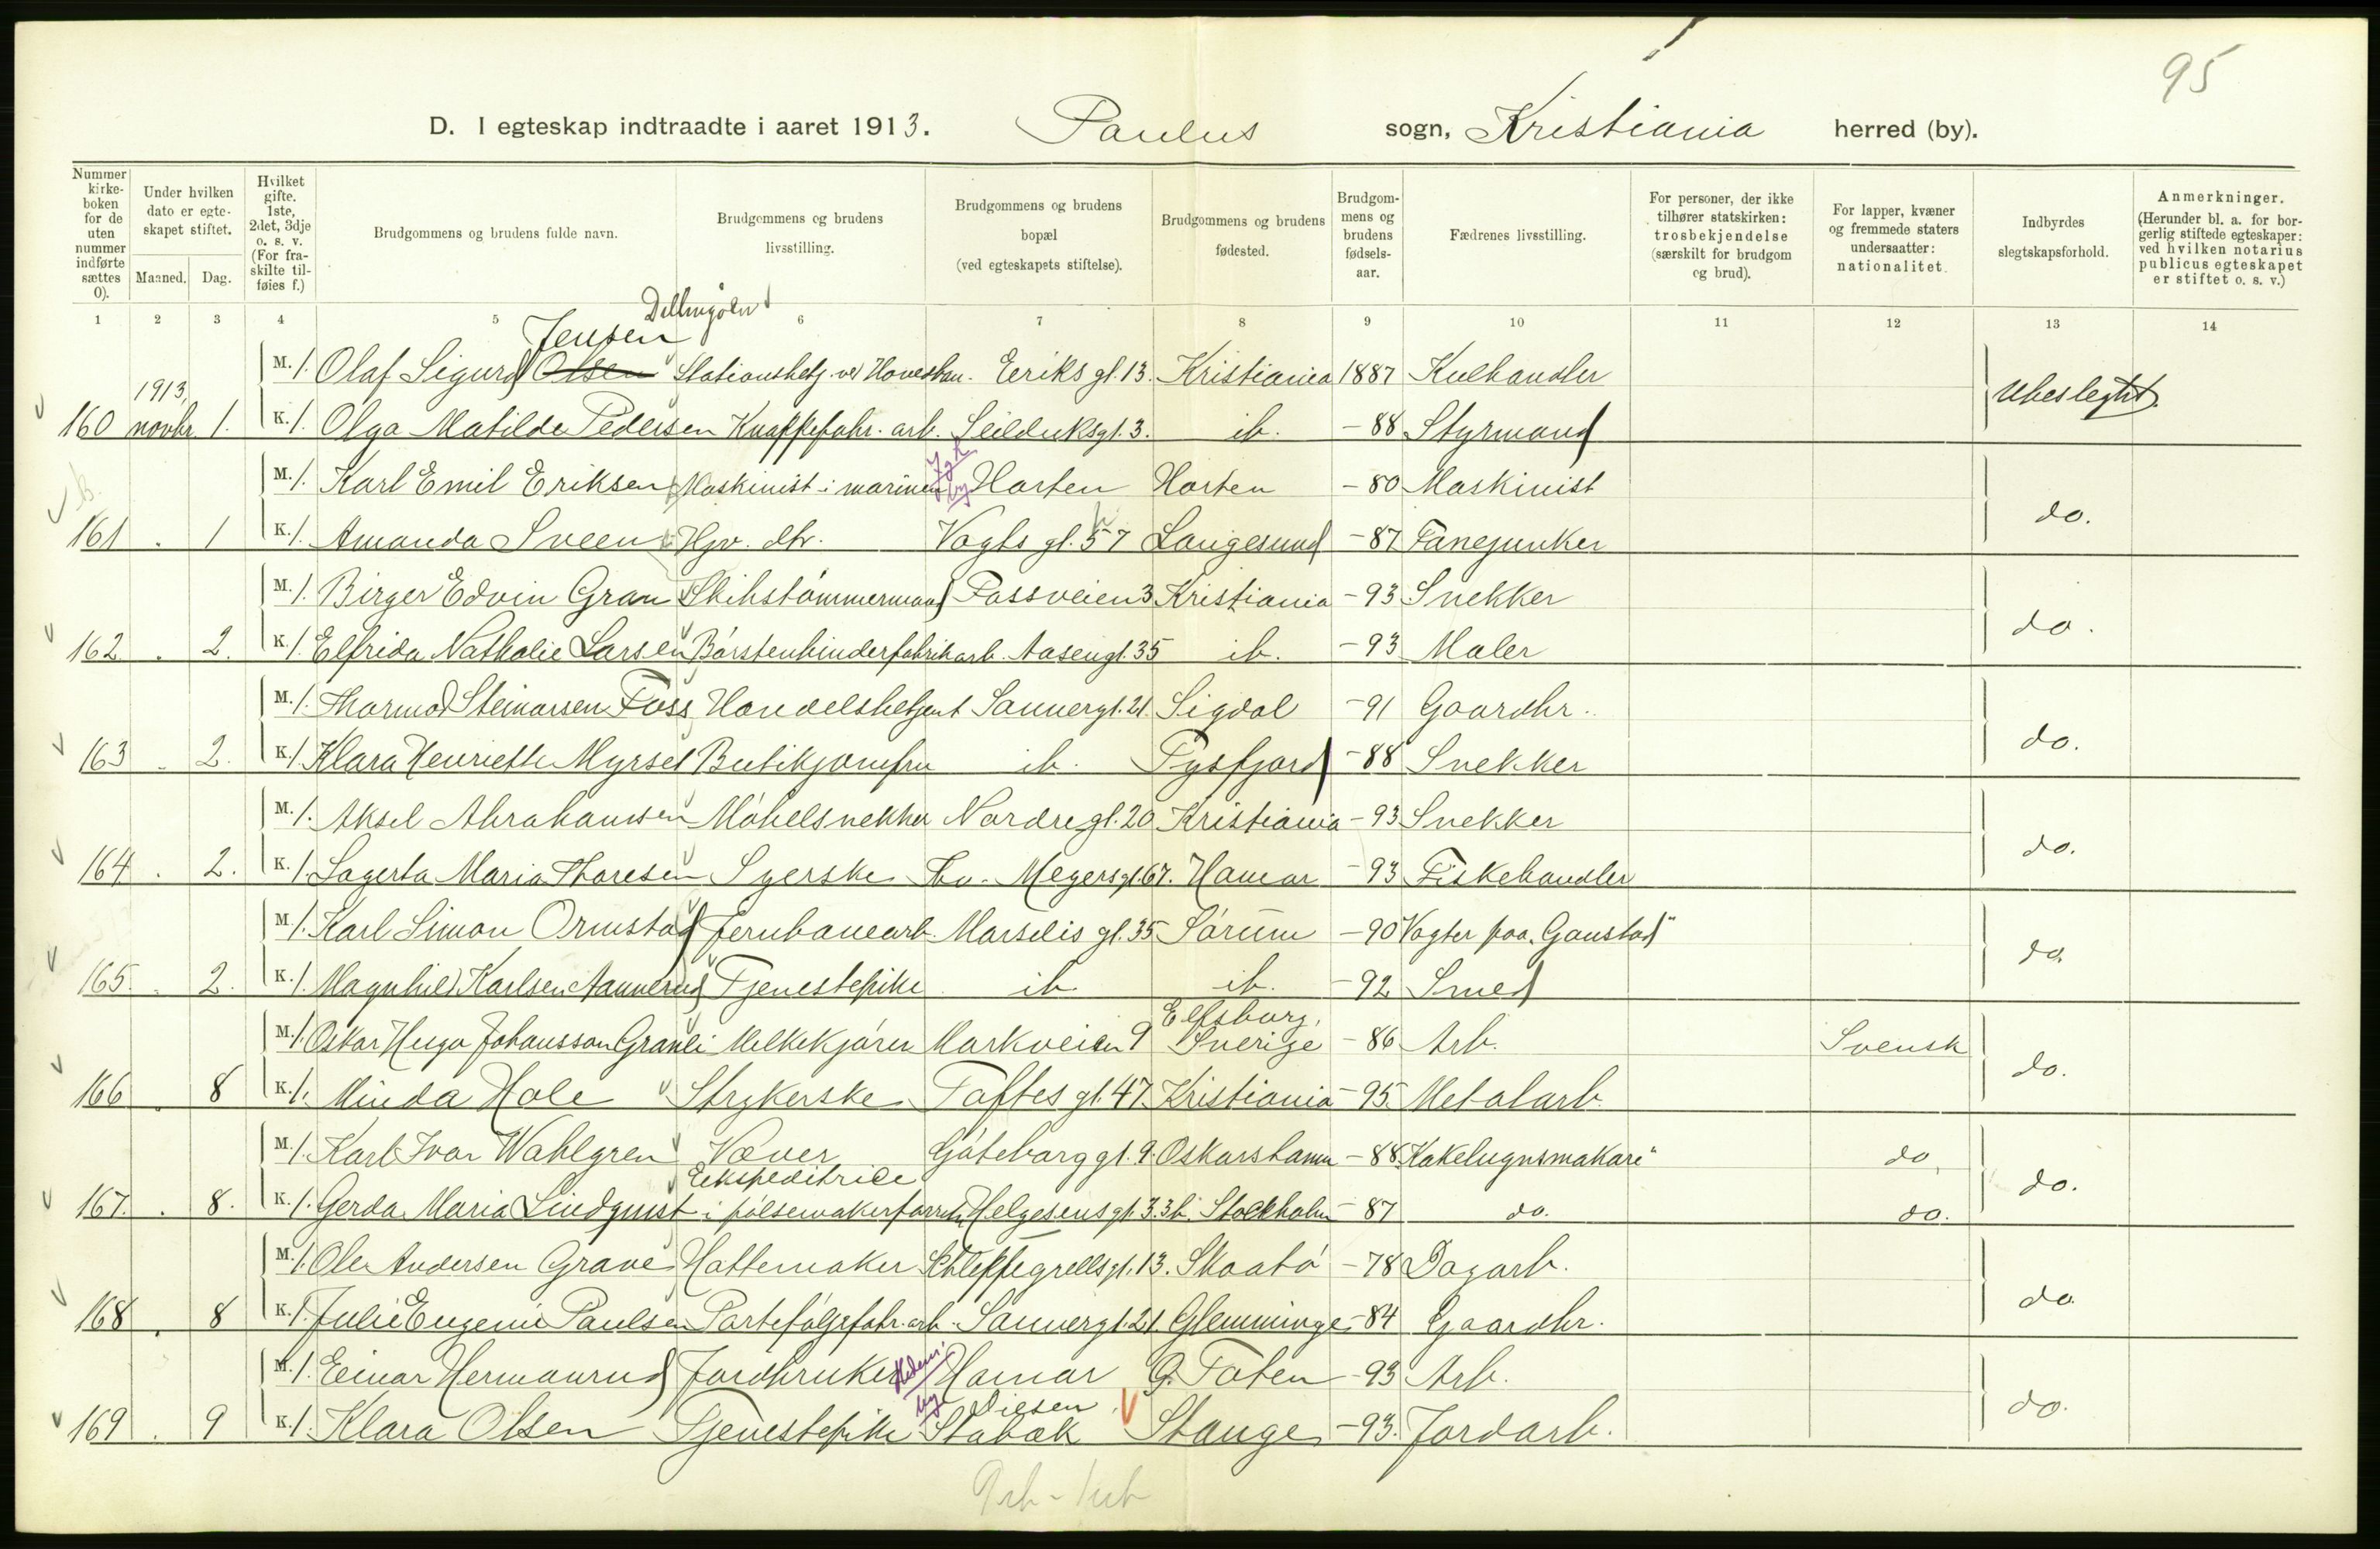 95
D. I egteskap indtraadte i aaret 1913. Paulus sogn, Kristiania herred (by).
Nummer kirkeboken for de uten nummer indførte sættes 0).
Under hvilken dato er egteskapet stiftet.
Maaned. Dag.
Hvilket gifte. 1ste, 2det, 3dje o. s. v. (For fraskilte tilføies f.)
Brudgommens og brudens fulde navn.
Brudgommens og brudens livsstilling.
Brudgommens og brudens bopæl (ved egteskapets stiftelse).
Brudgommens og brudens fødested.
Brudgommens og brudens fødselsaar.
Fædrenes livsstilling.
For personer, der ikke tilhører statskirken: trosbekjendelse (særskilt for brudgom og brud).
For lapper, kvæner og fremmede staters undersaatter: nationalitet.
Indbyrdes slegtskapsforhold.
Anmerkninger. (Herunder bl. a. for borgerlig stiftede egteskaper: ved hvilken notarius publicus egteskapet er stiftet o. s. v.)
1 2 3 4 5 6 7 8 9 10 11 12 13 14
Jensen
M. 1. Olaf Sigurd Olsen Stationsbetj. ved Hovedban. Eeriks gt. 13. Kristiania 1887 Kulhandler
1913,
160 novbr. 1. K. 1. Olga Matilde Pedersen Knappefabr. arb. Seilduksgt. 3. ib. -88 Styrmand Ubeslegtet.
M. 1. Karl Emil Eriksen Maskinist i marinen Horten Horten -80 Maskinist
161 . 1 K. 1. Amanda Sveen Hjv. dtr. Vogts gt. 57 Langesund -87 Fanejunker do.
M. 1. Birger Edvin Gran Skibstømmermand Fossveien 3 Kristiania -93 Snekker
162 . 2. K. 1. Elfrida Nathalie Larsen Børstenbinderfabrikarb. Aasengt. 35 ib. -93 Maler do.
M. 1. Thormod Steinarsen Foss Handelsbetjent Sannergt. 21. Sigdal -91 Gaardbr.
163 . 2. K. 1. Klara Henriette Myrset Butikjomfru ib. Tysfjord -88 Snekker do.
M. 1. Aksel Abrahamsen Møbelsnekker Nordregt. 20 Kristiania -93 Snekker
164 . 2. K. 1. Lagerta Maria Thoresen Syerske Th. Meyersgt. 67. Hamar -93 Fiskehandler do.
M. 1. Karl Simon Ormstad Jernbanearb. Marselis gt. 35 Sørum -90 Vogter paa "Gaustad"
165. . 2. K. 1. Magnhild Karlsen Aannerud Tjenestepike ib. ib. -92 Smed do.
Elfsborg,
M. 1. Oskar Hugo Johansson Granli Melkekjører Markveien 9 Sverige -86 Arb. Svensk
166 . 8 K. 1. Minda Hole Strykerske Toftes gt. 47. Kristiania -95. Metalarb. do.
M. 1. Karl Ivar Wahlgren Væver Gøteborggt. 9. Oskarshamn -88. "Kakelugnsmakare" do.
Ekspeditrice
167. . 8. K. 1. Gerda Maria Lindquist i pølsemakerforretn. Helgesensgt. 3. 3b. Stockholm -87 do. do. do.
M. 1. Ole Andersen Grave Hattemaker Schleppegrellsgt. 13. Skaatø -78 Dagarb.
168 . 8 K. 1. Julie Eugenie Paulsen Portefølgefabr. arb. Sannergt. 21. Glemminge -84 Gaardbr. do.
M. 1. Einar Hermanrud Jordbruker Hamar Ø. Toten -93 Arb.
169 . 9 K. 1. Klara Olsen Tjenestepike Stabæk Stange -93. Jordarb. do.